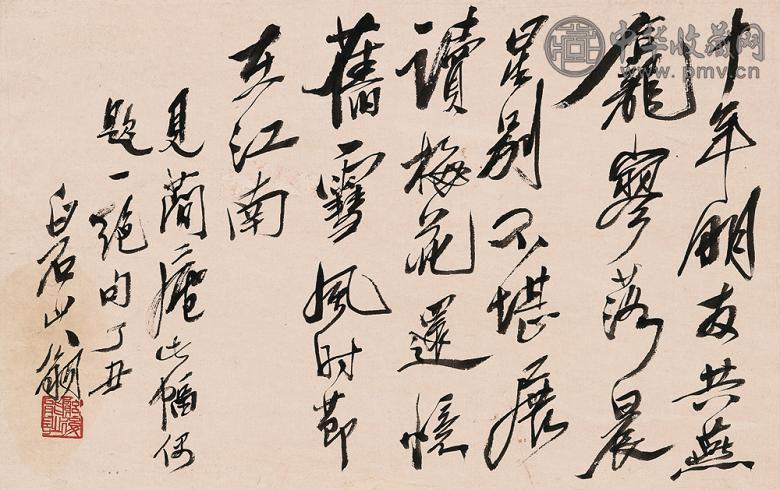 十年朋友共燕
龕寥落晨
星別不堪展
讀梅花還憶
舊雪風時節
在江南
見蕳庵此幅偶
題一絕句丁丑
白石山翁
中华收藏网
www.pmv.cn